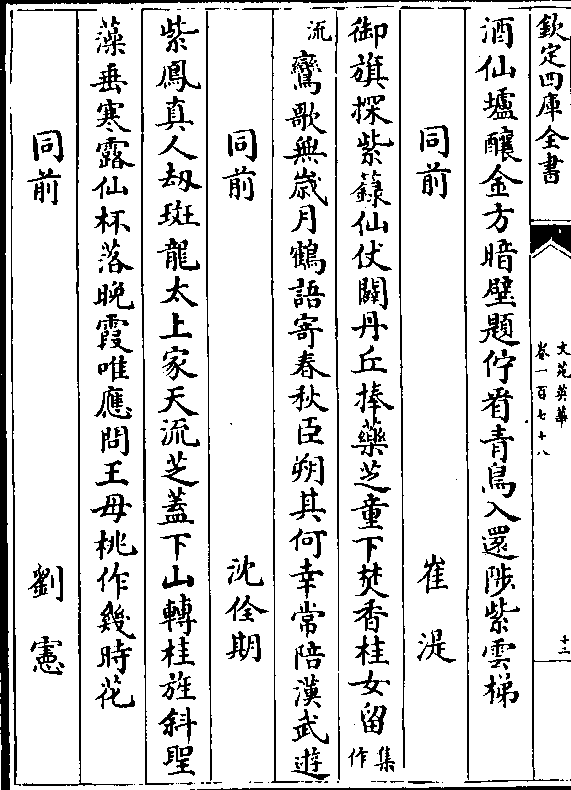 欽定四庫全書
文苑英華
卷一百七十八
十二
酒仙壚釀金方暗壁題佇看青鳥入還陟紫雲梯
同前 崔湜
御旗探紫籙仙仗闢丹丘捧藥芝童下焚香桂女留集作
流鸞歌無歲月鶴語寄春秋臣朔其何幸常陪漢武遊
同前 沈佺期
紫鳳真人刼斑龍太上家天流芝蓋下山轉桂旌斜聖
藻垂寒露仙杯落晚霞唯應問王母桃作幾時花
同前 劉憲